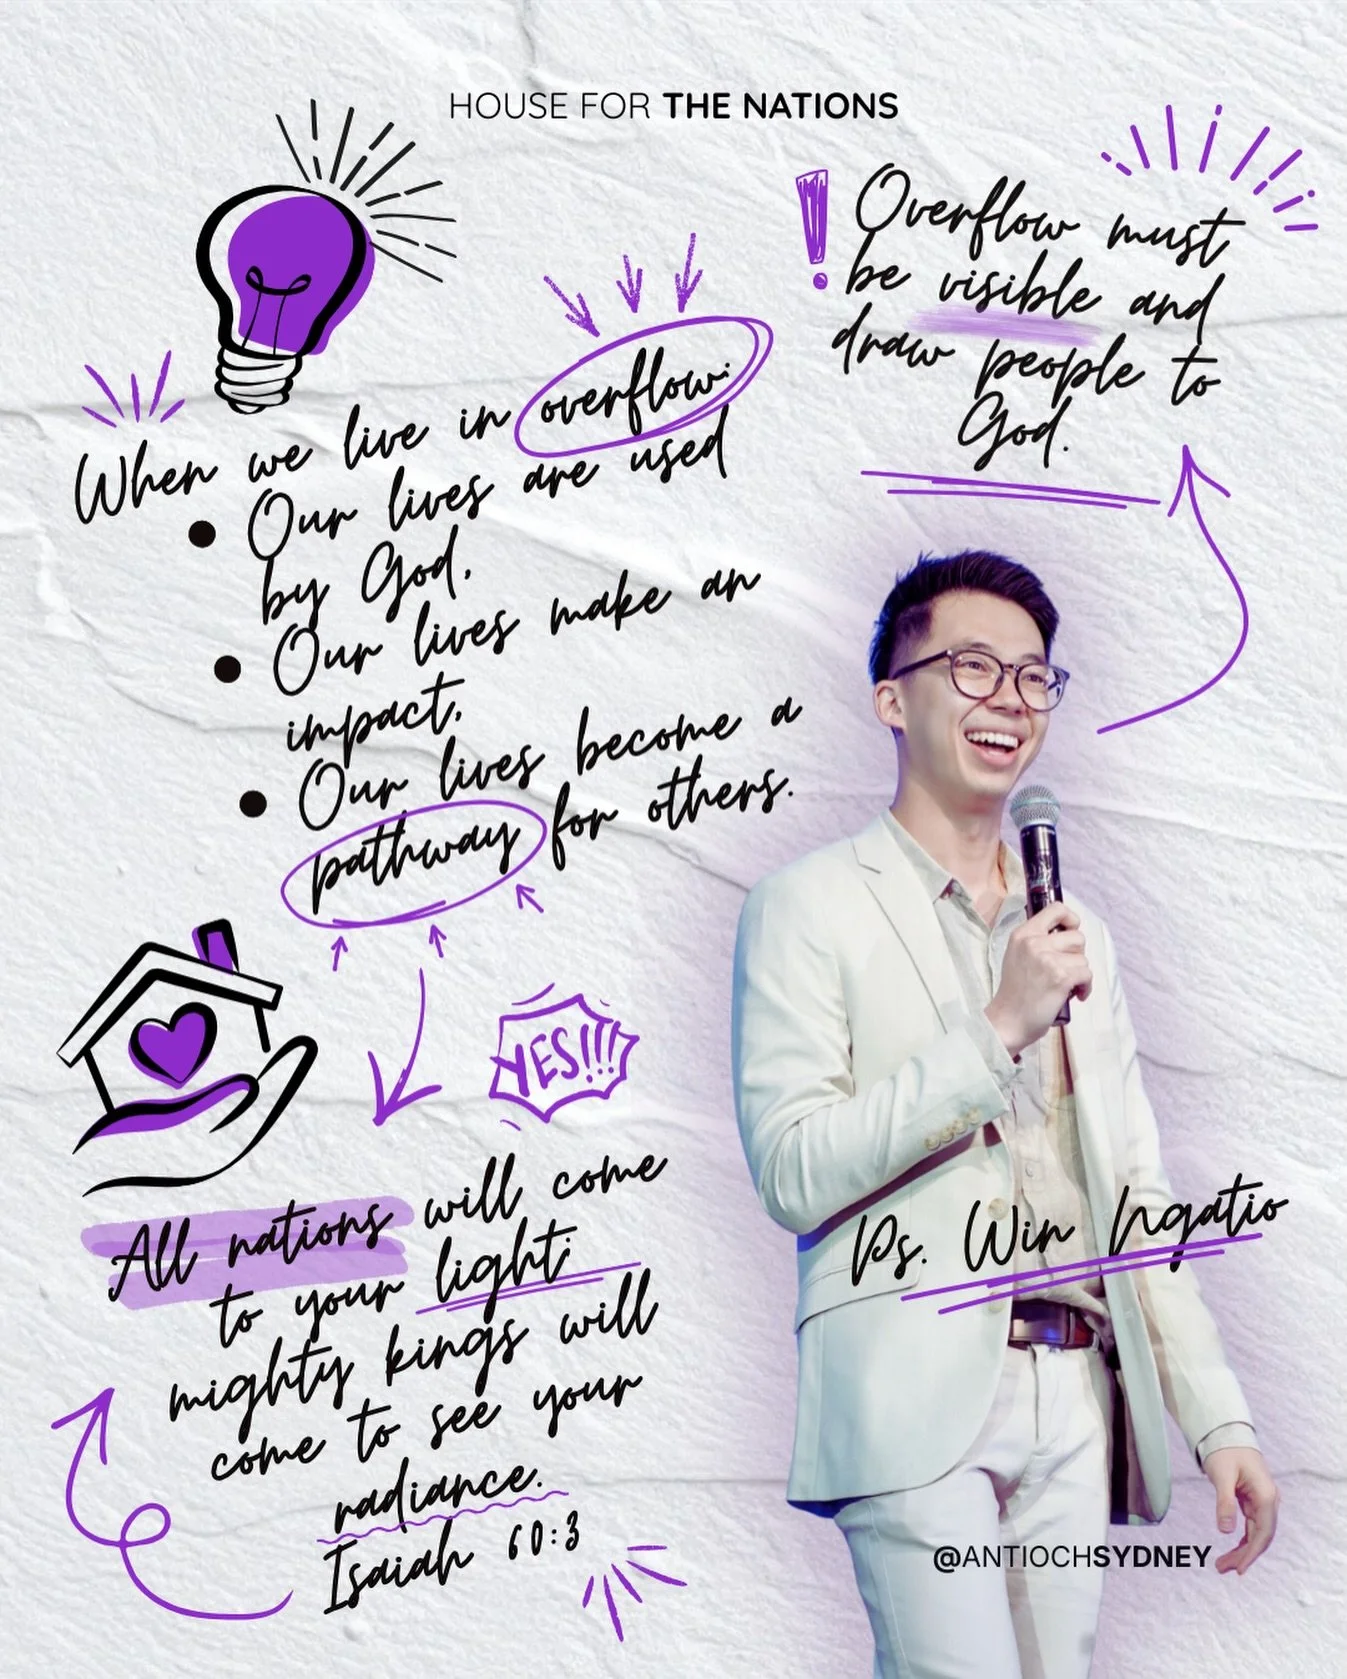 HOUSE FOR THE NATIONS
Overflow must
be visible and
draw people to
God.
When we live in overflow:
Our lives are used
by God,
Our lives make an
impact,
Our lives become a
pathway for others.
YES!!!
All nations will come
to your light;
mighty kings will
come to see your
radiance.
Isaiah 60:3
Ps. Win Ngatio
@ANTIOCHSYDNEY